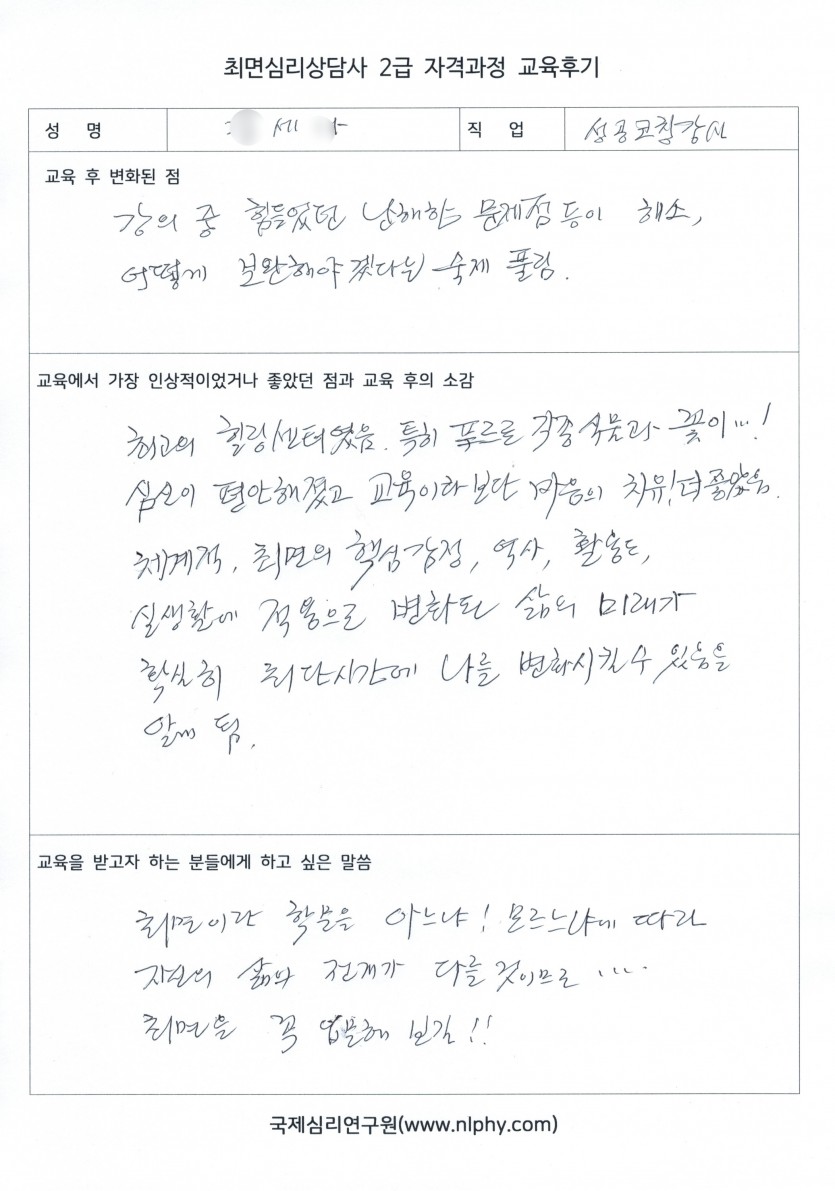 최면심리상담사 2급 자격과정 교육후기
성 명 세 직 업 성공코칭강사
교육 후 변화된 점
강의 중 힘들었던 난해한 문제점 등이 해소,
어떻게 보완해야겠다는 숙제 풀림.
교육에서 가장 인상적이었거나 좋았던 점과 교육 후의 소감
최고의 힐링센터였음. 특히 푸르른 각종식물과 꽃이...!
심신이 편안해졌고 교육이라보단 마음의 치유! 더 좋았음.
체계적, 최면의 핵심감정, 역사, 활용도,
실생활에 적용으로 변화된 삶의 미래가
확실히 최단시간에 나를 변화시킬 수 있음을
알게 됨.
교육을 받고자 하는 분들에게 하고 싶은 말씀
최면이란 학문을 아느냐! 모르느냐에 따라
자신의 삶의 전개가 다를것이므로 .....
최면을 꼭 입문해 보길!!
국제심리연구원(www.nlphy.com)